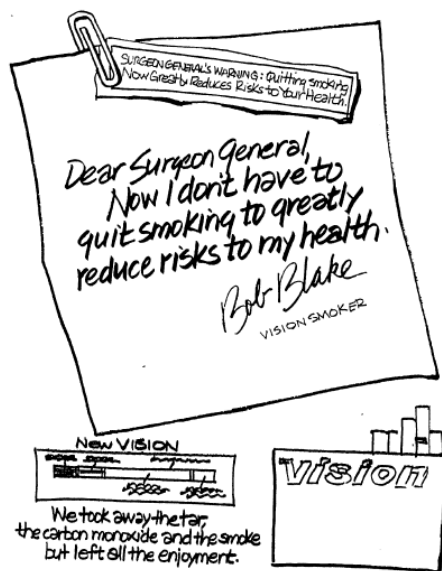 SURGEON GENERAL'S WARNING: Quitting smoking
Now Greatly Reduces Risks to Your Health.
Dear Surgeon General,
Now I don't have to
quit smoking to greatly
reduce risks to my health.
Bob Blake
VISION SMOKER
New VISION
We took away the tar,
the carbon monoxide and the smoke
but left all the enjoyment.
vision